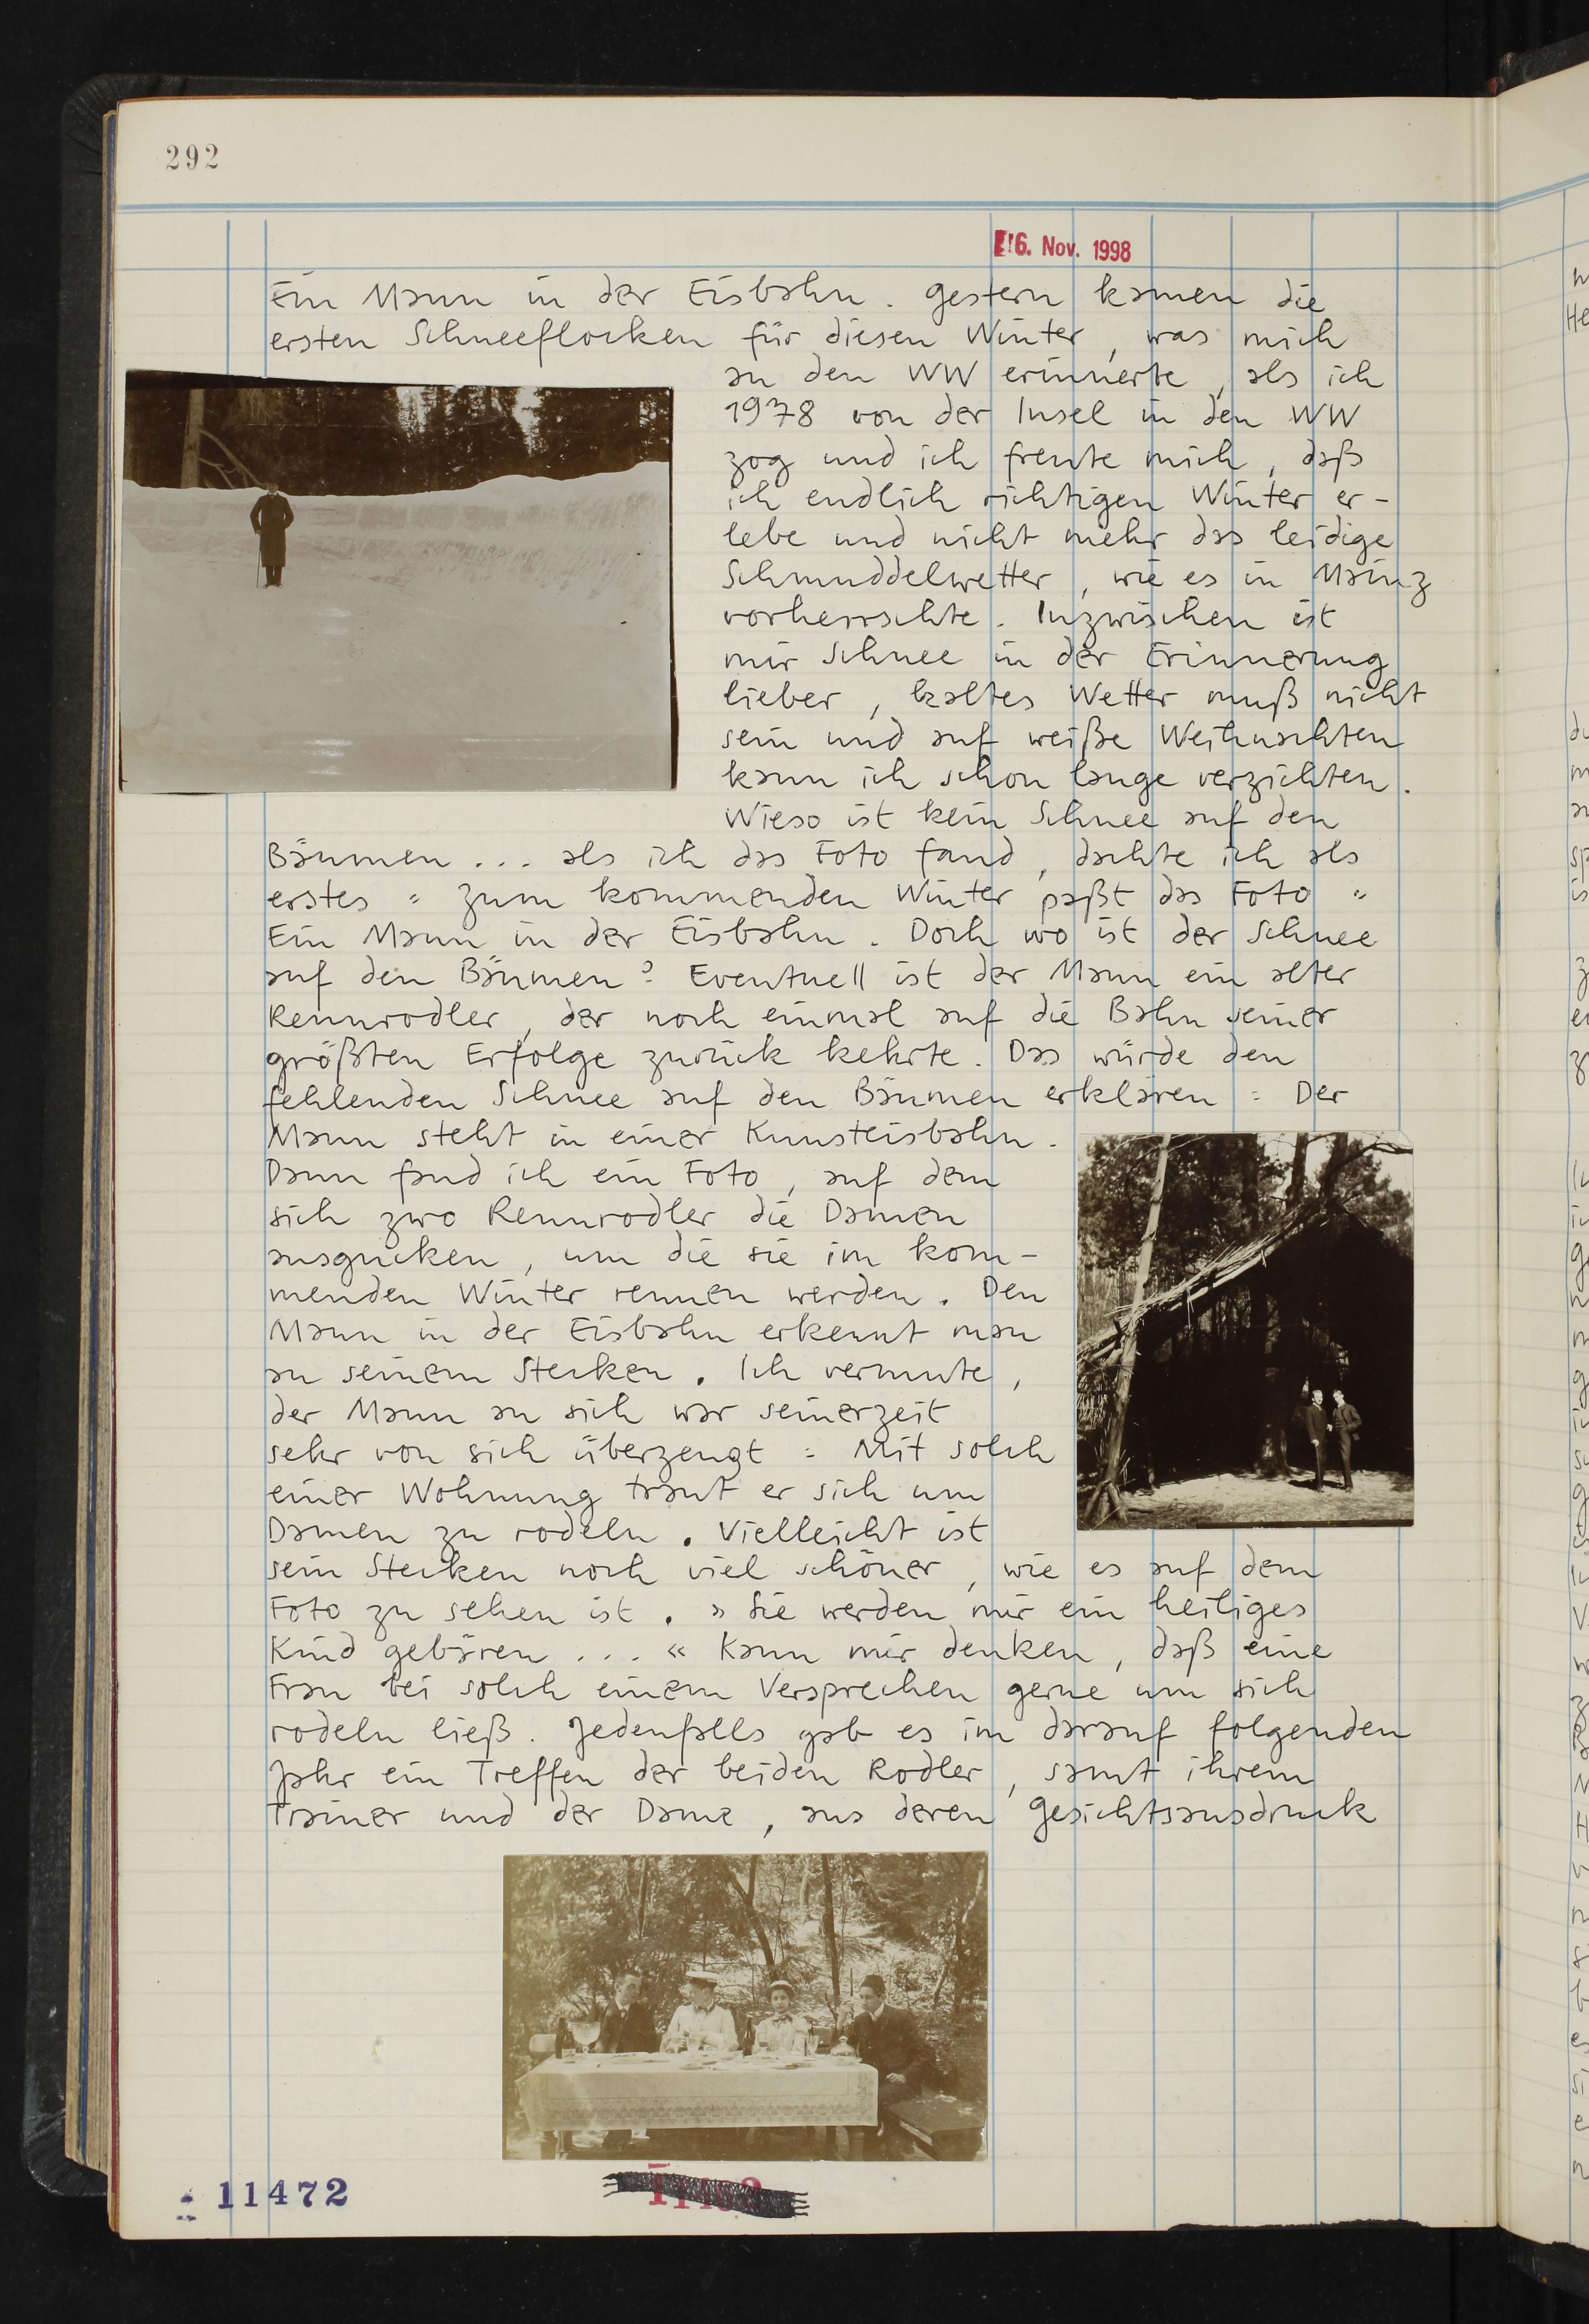 292
16. Nov. 1998
Ein Mann in der Eisbahn. Gestern kamen die
ersten Schneeflocken für diesen Winter, was mich
an den WW erinnerte, als ich
1978 von der Insel in den WW
zog und ich freute mich, daß
ich endlich richtigen Winter er-
lebe und nicht mehr das leidige
Schmuddelwetter, wie es in Mainz
vorherrschte. Inzwischen ist
mir Schnee in der Erinnerung
lieber, kaltes Wetter muß nicht
sein und auf weiße Weihnachten
kann ich schon lange verzichten.
Wieso ist kein Schnee auf den
Bäumen ... als ich das Foto fand, dachte ich als
erstes " zum kommenden Winter paßt das Foto "
Ein Mann in der Eisbahn. Doch wo ist der Schnee
auf den Bäumen? Eventuell ist der Mann ein alter
Rennrodler, der noch einmal auf die Bahn seiner
größten Erfolge zurück kehrte. Das würde den
fehlenden Schnee auf den Bäumen erklären: Der
Mann steht in einer Kunsteisbahn.
Dann fand ich ein Foto, auf dem
sich zwo Rennrodler die Damen
ausgucken, um die sie im kom-
menden Winter rennen werden. Den
Mann in der Eisbahn erkennt man
an seinem Stecken. Ich vermute,
der Mann an sich war seinerzeit
sehr von sich überzeugt: Mit solch
einer Wohnung traut er sich um
Damen zu rodeln. Vielleicht ist
sein Stecken noch viel schöner, wie es auf dem
Foto zu sehen ist. » Sie werden mir ein heiliges
Kind gebären ... « Kann mir denken, daß eine
Frau bei solch einem Versprechen gerne um sich
rodeln ließ. Jedenfalls gab es im darauf folgenden
Jahr ein Treffen der beiden Rodler, samt ihrem
Trainer und der Dame, aus deren Gesichtsausdruck
11472